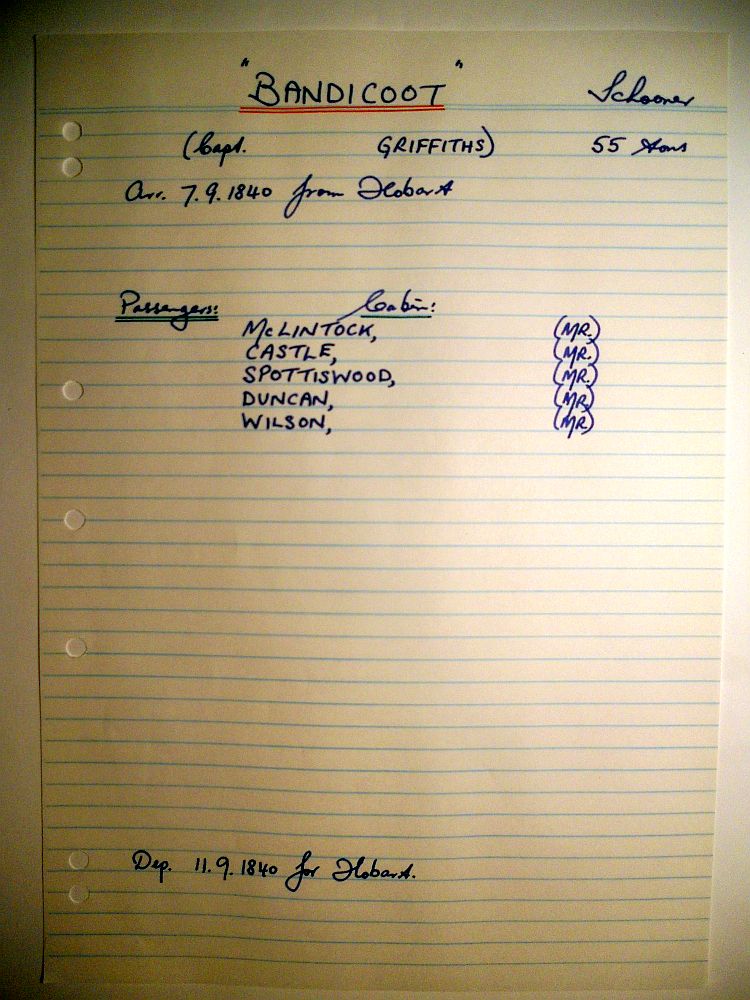 "BANDICOOT" Schooner
(Capt. GRIFFITHS) 55 tons
Arr. 7.9.1840 from Hobart
Passengers: Cabin:
McLINTOCK, (MR.)
CASTLE, (MR.)
SPOTTISWOOD, (MR.)
DUNCAN, (MR)
WILSON, (MR)
Dep. 11.9.1840 for Hobart.